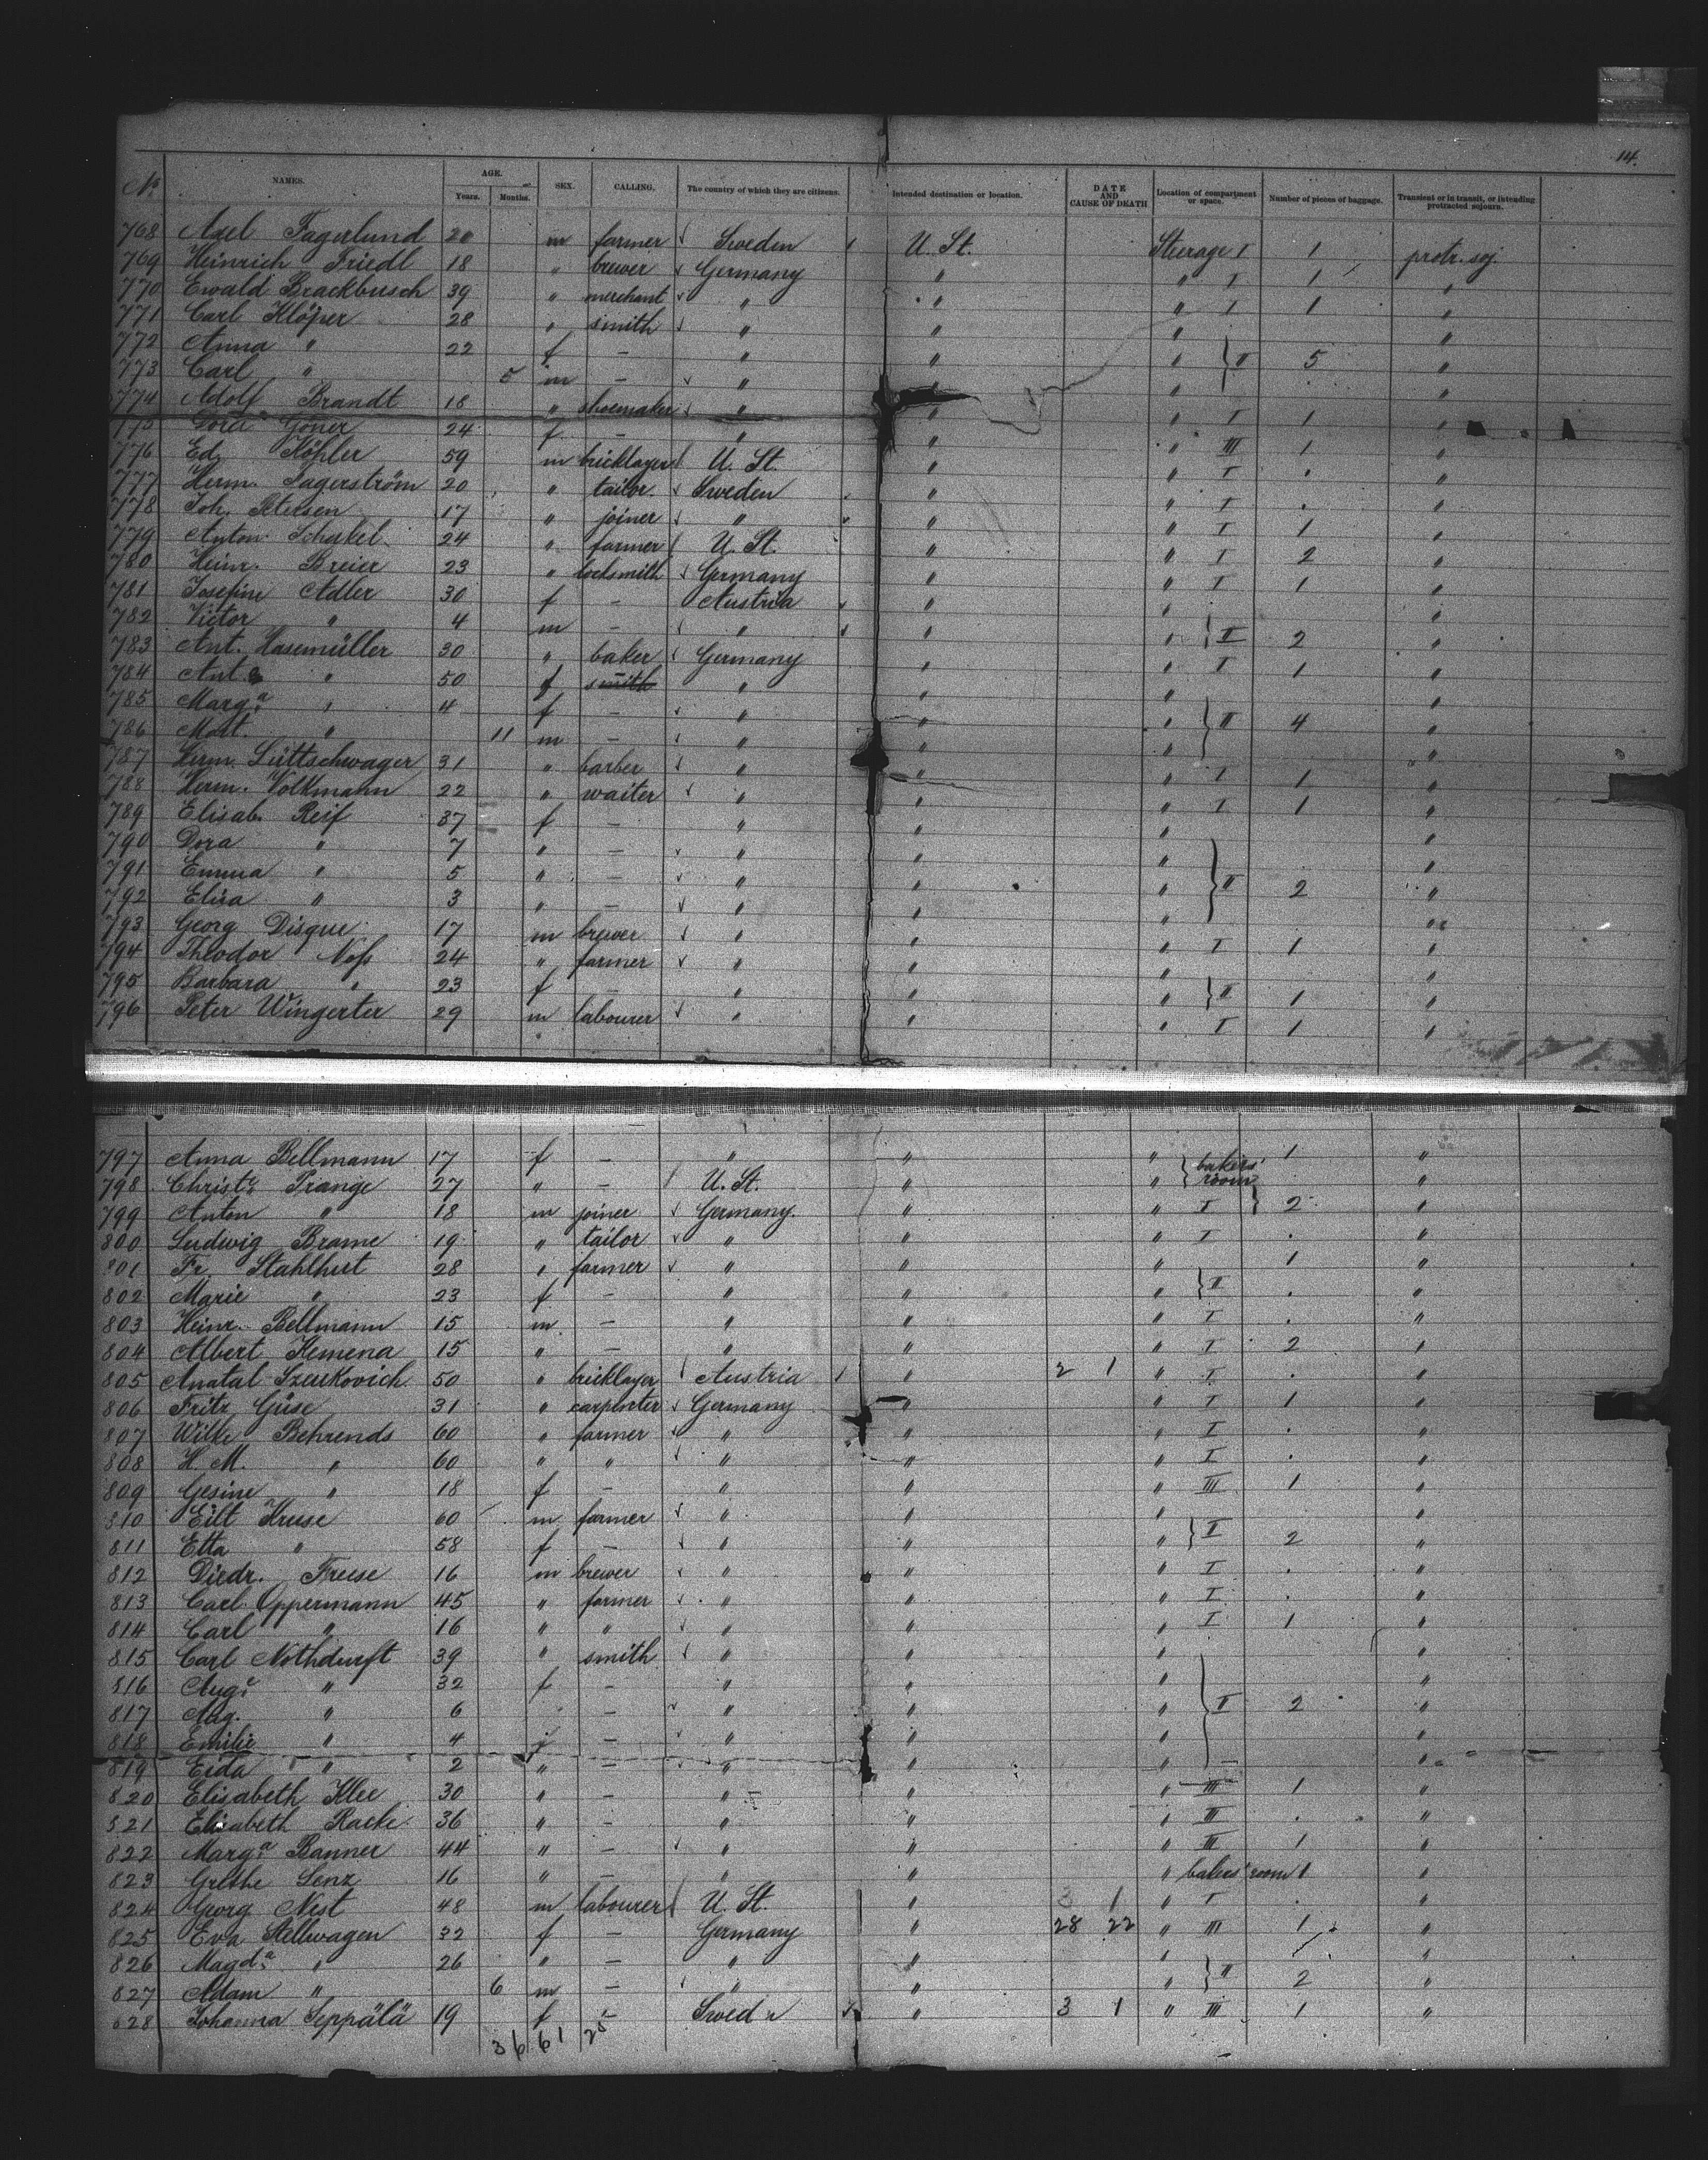 14.
No NAMES. AGE. Years. Months. SEX. CALLING. The country of which they are citizens. Intended destination or location. DATE AND CAUSE OF DEATH Location of compartment or space. Number of pieces of baggage. Transient or in transit, or intending protracted sojourn.
768 Axel Fagerlund 20 m farmer Sweden U. St. Steerage I 1 protr. soj.
769 Heinrich Friedl 18 " brewer Germany " " I 1 "
770 Ewald Brackbusch 39 " merchant " " " I 1 "
771 Carl Klöper 28 " smith " " " "
772 Anna " 22 f — " " " } II 5 "
773 Carl " 5 m — " " " "
774 Adolf Brandt 18 " shoemaker " " " I 1 "
775 Dora 24 f — " " " III 1 "
776 Ed. Köhler 59 m bricklayer U. St. " " I . "
777 Herm. 20 " tailor Sweden " " I . "
778 Joh. Petersen 17 " joiner " " " I 1 "
779 Anton Schakel 24 " farmer U. St. " " I 2 "
780 Heinr. Breier 23 " locksmith Germany " " I 1 "
781 Josefine Adler 30 f — Austria " " "
782 Victor " 4 m — " " " } II 2 "
783 Ant. Hasemüller 30 " baker Germany " " I 1 "
784 Ant. " 50 f smith " " " "
785 Marga " 4 f — " " " } II 4 "
786 Matt. " 11 m — " " " "
787 Herm. Lüttschwager 31 " barber " " " I 1 "
788 Herm. Volkmann 22 " waiter " " " I 1 "
789 Elisab. Reif 37 f — " " " "
790 Dora " 7 " — " " " "
791 Emma " 5 " — " " " } II 2 "
792 Elisa " 3 " — " " " "
793 Georg Disque 17 m brewer " " " I 1 "
794 Theodor Noss 24 " farmer " " " "
795 Barbara " 23 f — " " " } II 1 "
796 Peter Wingerter 29 m labourer " " " I 1 "
797 Anna Bellmann 17 f — " " " } bakers' room 1 "
798 Christe Prange 27 " — U. St. " " "
799 Anton " 18 m joiner Germany " " I } 2 "
800 Ludwig Brame 19 " tailor " " " I . "
801 Fr. Stahlhut 28 " farmer " " " 1 "
802 Marie " 23 f — " " " } II . "
803 Heinr. Bellmann 15 m — " " " I . "
804 Albert Kemena 15 " — " " " I 2 "
805 Anatal Szeukovich 50 " bricklayer Austria " 2 1 " I . "
806 Fritz Güse 31 " carpenter Germany " " I 1 "
807 Wilke Behrends 60 " farmer " " " I . "
808 H. M. " 60 " " " " " I . "
809 Gesine " 18 f — " " " III 1 "
810 Eilt Kruse 60 m farmer " " " "
811 Etta " 58 f — " " " } II 2 "
812 Diedr. Freese 16 m brewer " " " I . "
813 Carl Oppermann 45 " farmer " " " I . "
814 Carl " 16 " " " " " I 1 "
815 Carl Nothdurft 39 " smith " " " "
816 Auge " 32 f — " " " "
817 Aug. " 6 — " " " } II 2 "
818 Emilie " 4 f — " " " "
819 Eida " 2 " — " " " "
820 Elisabeth Klee 30 " — " " " III 1 "
821 Elisabeth Racke 36 " — " " " III . "
822 Marga Banner 44 " — " " " III 1 "
823 Grethe Lenz 16 " — " " " bakers' room 1 "
824 Georg Nest 48 m labourer U. St. " 3 1 " I . "
825 Eva Stellwagen 32 f — Germany " 28 22 " III 1 "
826 Magda " 26 " — " " " "
827 Adam " 6 m — " " " } II 2 "
828 Johanna Seppälä 19 f — Sweden " 3 1 " III 1 "
36 61 25